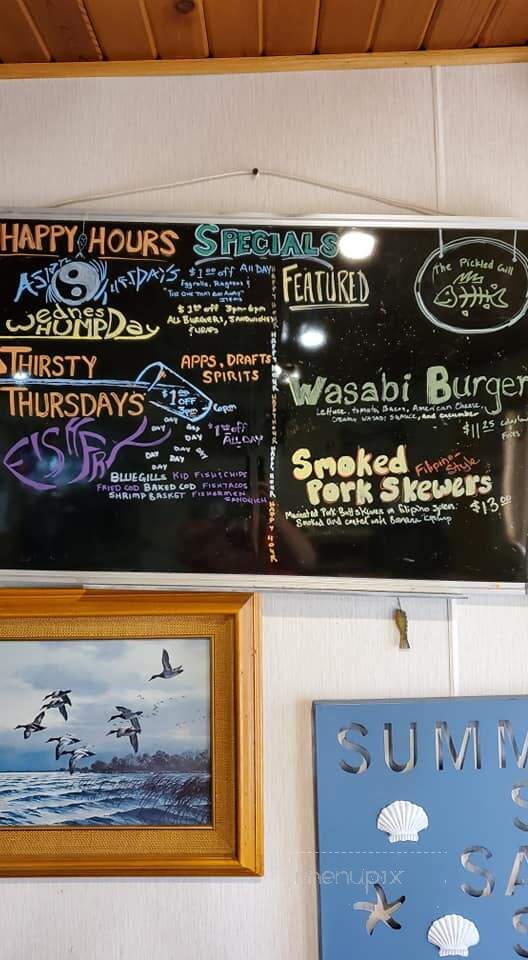 HAPPY HOURS SPECIALS
ASIAN TUESDAYS $1.00 off ALL DAY
Eggrolls, Rangoons &
"THE ONE THAT GOT AWAY"
ITEMS
Wednes HUMPDay
$1.00 off 3pm-6pm
ALL BURGERS, SANDWICHES
THIRSTY
THURSDAYS
APPS, DRAFTS
SPIRITS
$1.00
OFF
3pm 6pm
FISH FRY
DAY DAY
DAY DAY
DAY DAY
DAY DAY
$1.00 off
ALL DAY
BLUEGILLS KID FISH & CHIPS
FRIED COD BAKED COD FISH TACOS
SHRIMP BASKET FISHERMEN
SANDWICH
FEATURED
The Pickled Gill
Wasabi Burger
Lettuce, tomato, Bacon, American Cheese,
Creamy wasabi sauce, and cucumber
$11.25
Smoked Filipino-
Style
Pork Skewers
Marinated Pork Butt skewers in filipino juices.
Smoked and coated with Banana
$13.00
SUMM
S
SA
S
menupix